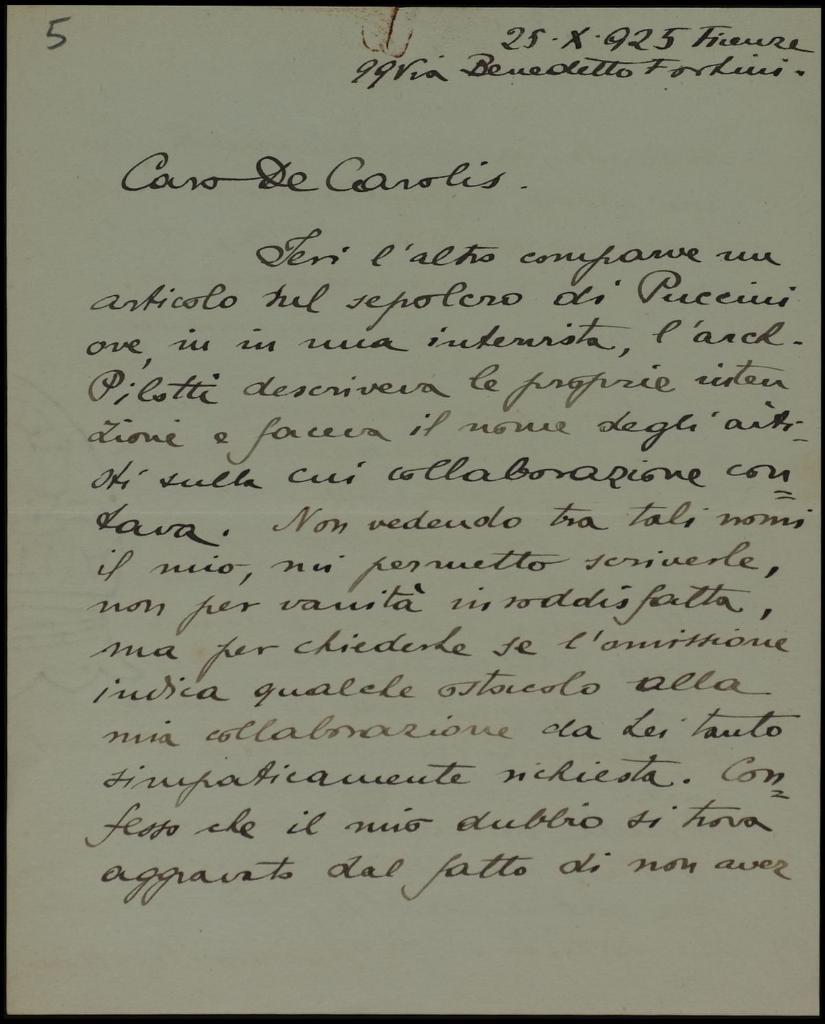 5
25·X·925 Firenze
99 Via Benedetto Fortini.
Caro De Carolis.
Ieri l'altro comparve un
articolo sul sepolcro di Puccini
ove, in in una intervista, l'arch.
Pilotti descriveva le proprie inten
zioni e faceva il nome degli arti-
sti sulla cui collaborazione con=
tava. Non vedendo tra tali nomi
il mio, mi permetto scriverle,
non per vanità insoddisfatta,
ma per chiederle se l'omissione
indica qualche ostacolo alla
mia collaborazione da Lei tanto
simpaticamente richiesta. Con=
fesso che il mio dubbio si trova
aggravato dal fatto di non aver